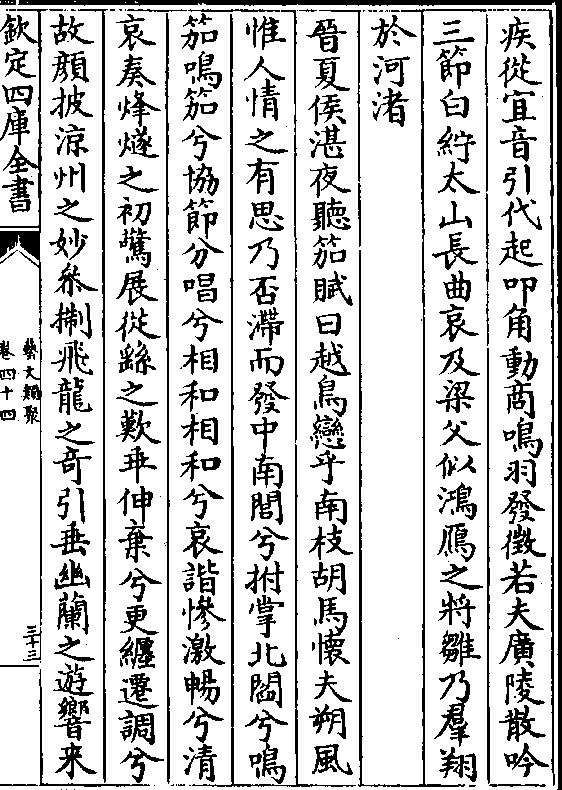 疾從宜音引代起叩角動商鳴羽發徵若夫廣陵散吟
三節白紵太山長曲哀及梁父似鴻鴈之將雛乃羣翔
於河渚
晉夏侯湛夜聽笳賦曰越鳥戀乎南枝胡馬懷夫朔風
惟人情之有思乃否滯而發中南閭兮拊掌北閻兮鳴
笳鳴笳兮協節分唱兮相和相和兮哀諧慘激暢兮清
哀奏烽燧之初驚展從繇之歎乖伸棄兮更纏遷調兮
故顔披涼州之妙參制飛龍之奇引垂幽蘭之遊響来
欽定四庫全書
藝文類聚
卷四十四
三十三